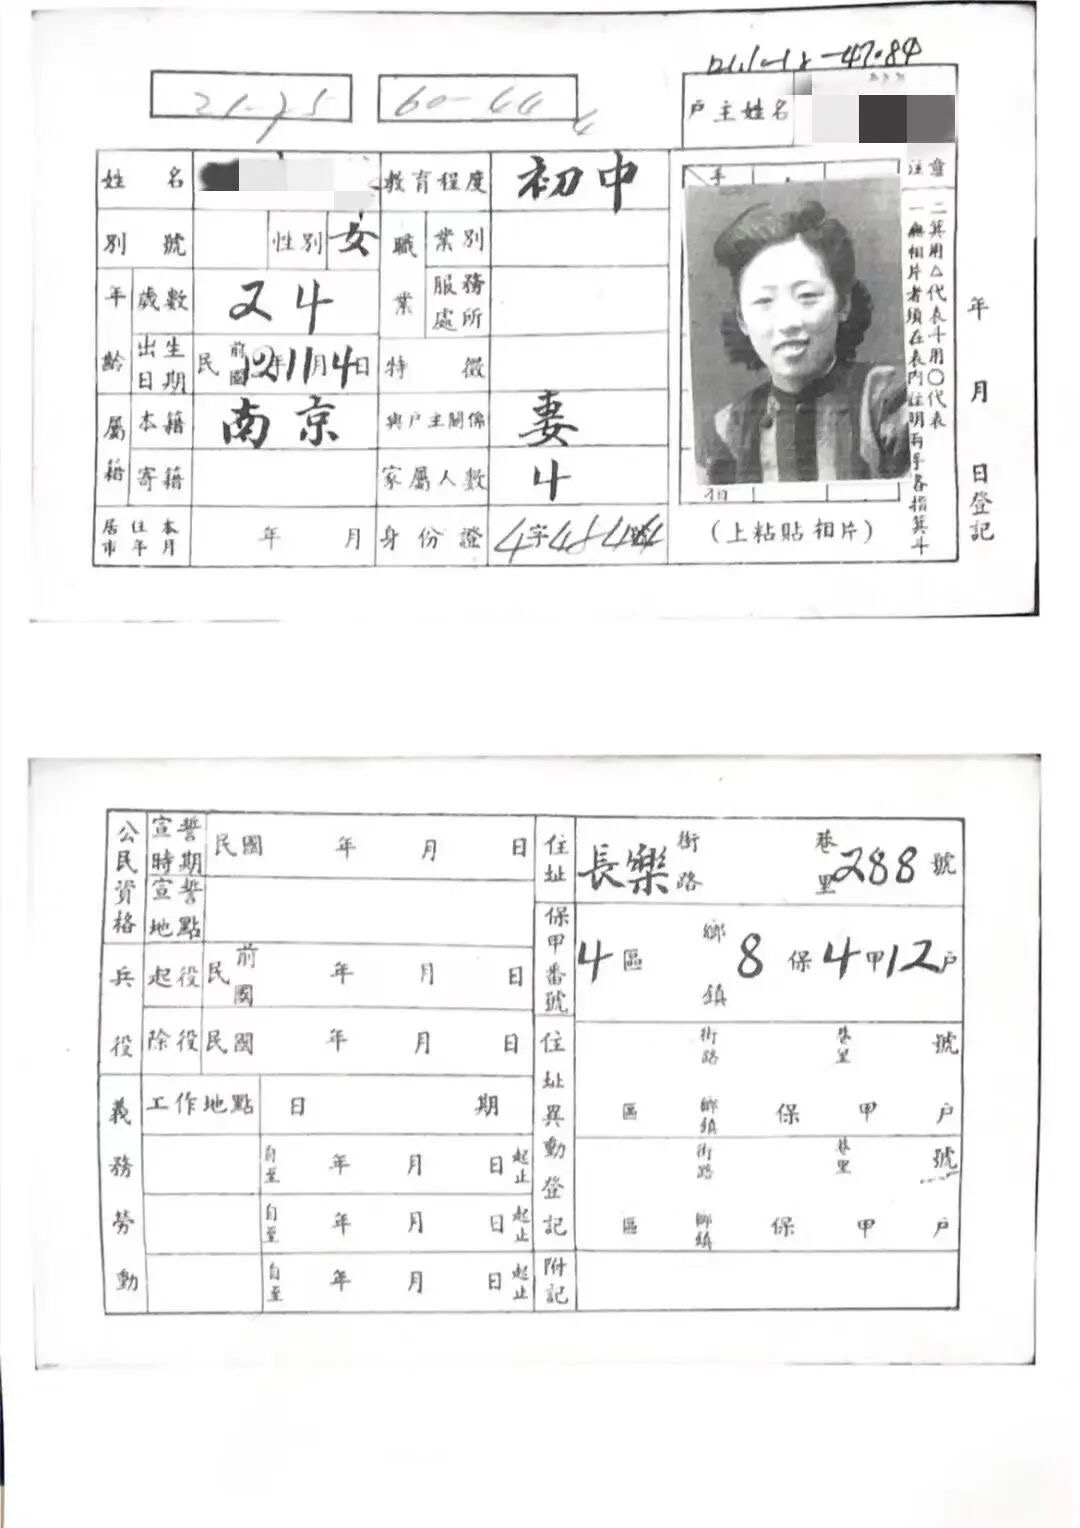 21-75 60-44 4
戶主姓名
姓名 教育程度 初中
別號 性別 女 職業 業別
年齡 歲數 24 服務處所
出生日期 民前國 12年11月4日 特徵
屬籍 本籍 南京 與戶主關係 妻
寄籍 家屬人數 4
居住本市年月 年 月 身份證 4字
(上粘貼相片)
注意
一無相片者須在表內註明兩手各指箕斗
二箕用△代表斗用○代表
年 月 日登記
公民資格 宣誓時期 民國 年 月 日 住址 長樂 街路 巷里 288 號
宣誓地點
保甲番號 4區 鄉鎮 8保4甲12戶
兵役 起役 民前國 年 月 日
除役 民國 年 月 日 住址異動登記 街路 巷里 號
義務勞動 工作地點 日期 區 鄉鎮 保 甲 戶
自至 年 月 日 起止 街路 巷里 號
自至 年 月 日 起止 區 鄉鎮 保 甲 戶
自至 年 月 日 起止 附記